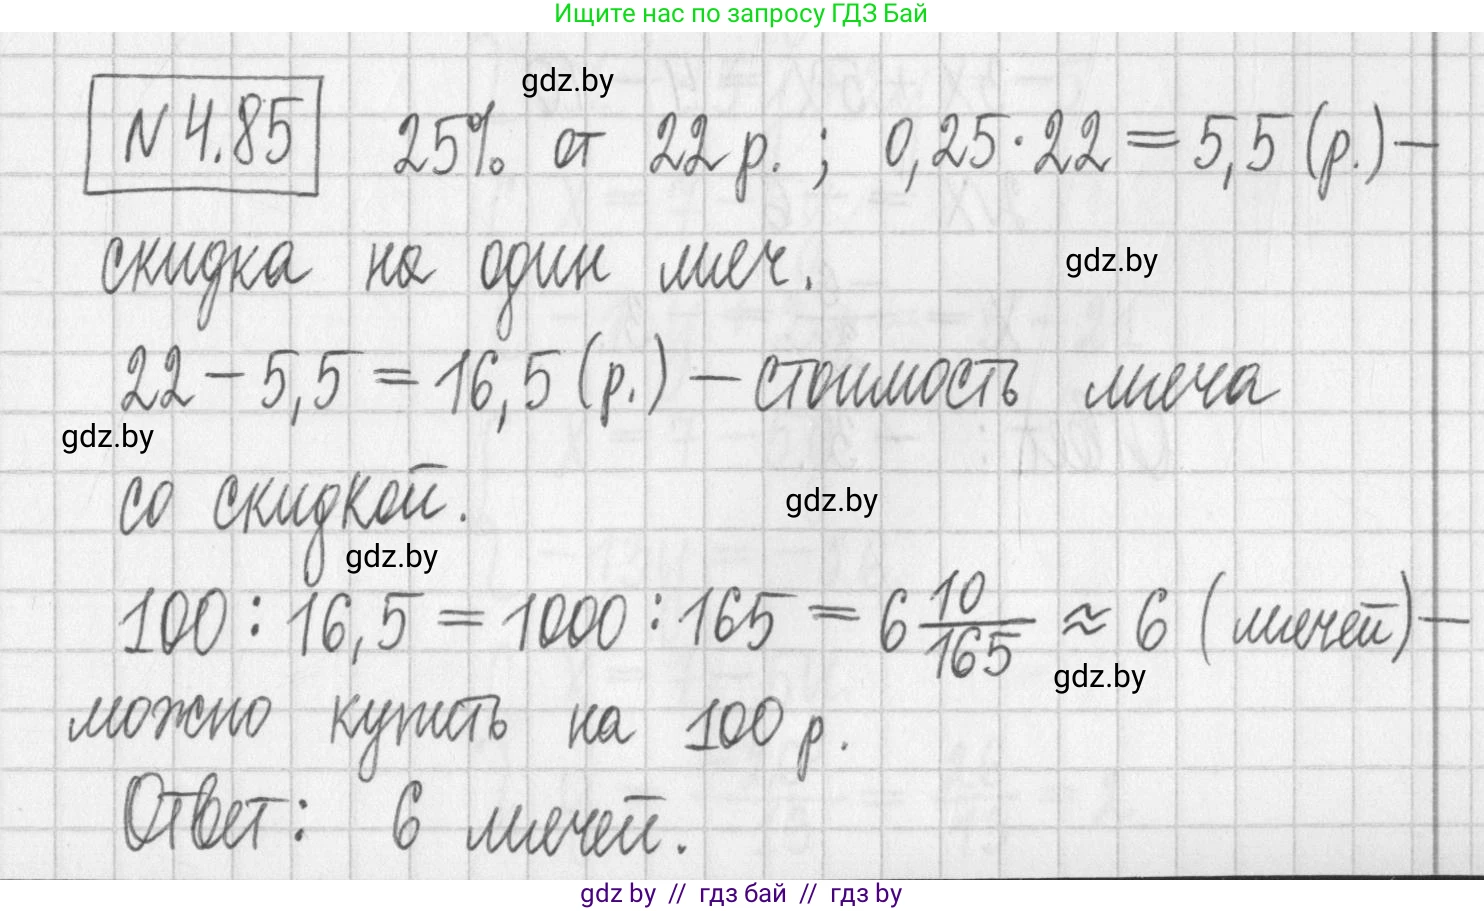 Ищите нас по запросу ГДЗ Бай
gdz.by
N 4.85 25% от 22 р. ; 0,25 · 22 = 5,5 (р.) –
скидка на один мяч.
gdz.by
22 – 5,5 = 16,5 (р.) – стоимость мяча
gdz.by
со скидкой.
gdz.by
gdz.by
100 : 16,5 = 1000 : 165 = 6 10/165 ≈ 6 (мячей) –
gdz.by
можно купить на 100 р.
Ответ: 6 мячей.
gdz by // гдз бай // гдз by